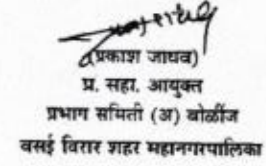 (प्रकाश जाधव)
प्र. सहा. आयुक्त
प्रभाग समिती (अ) बोळींज
वसई विरार शहर महानगरपालिका